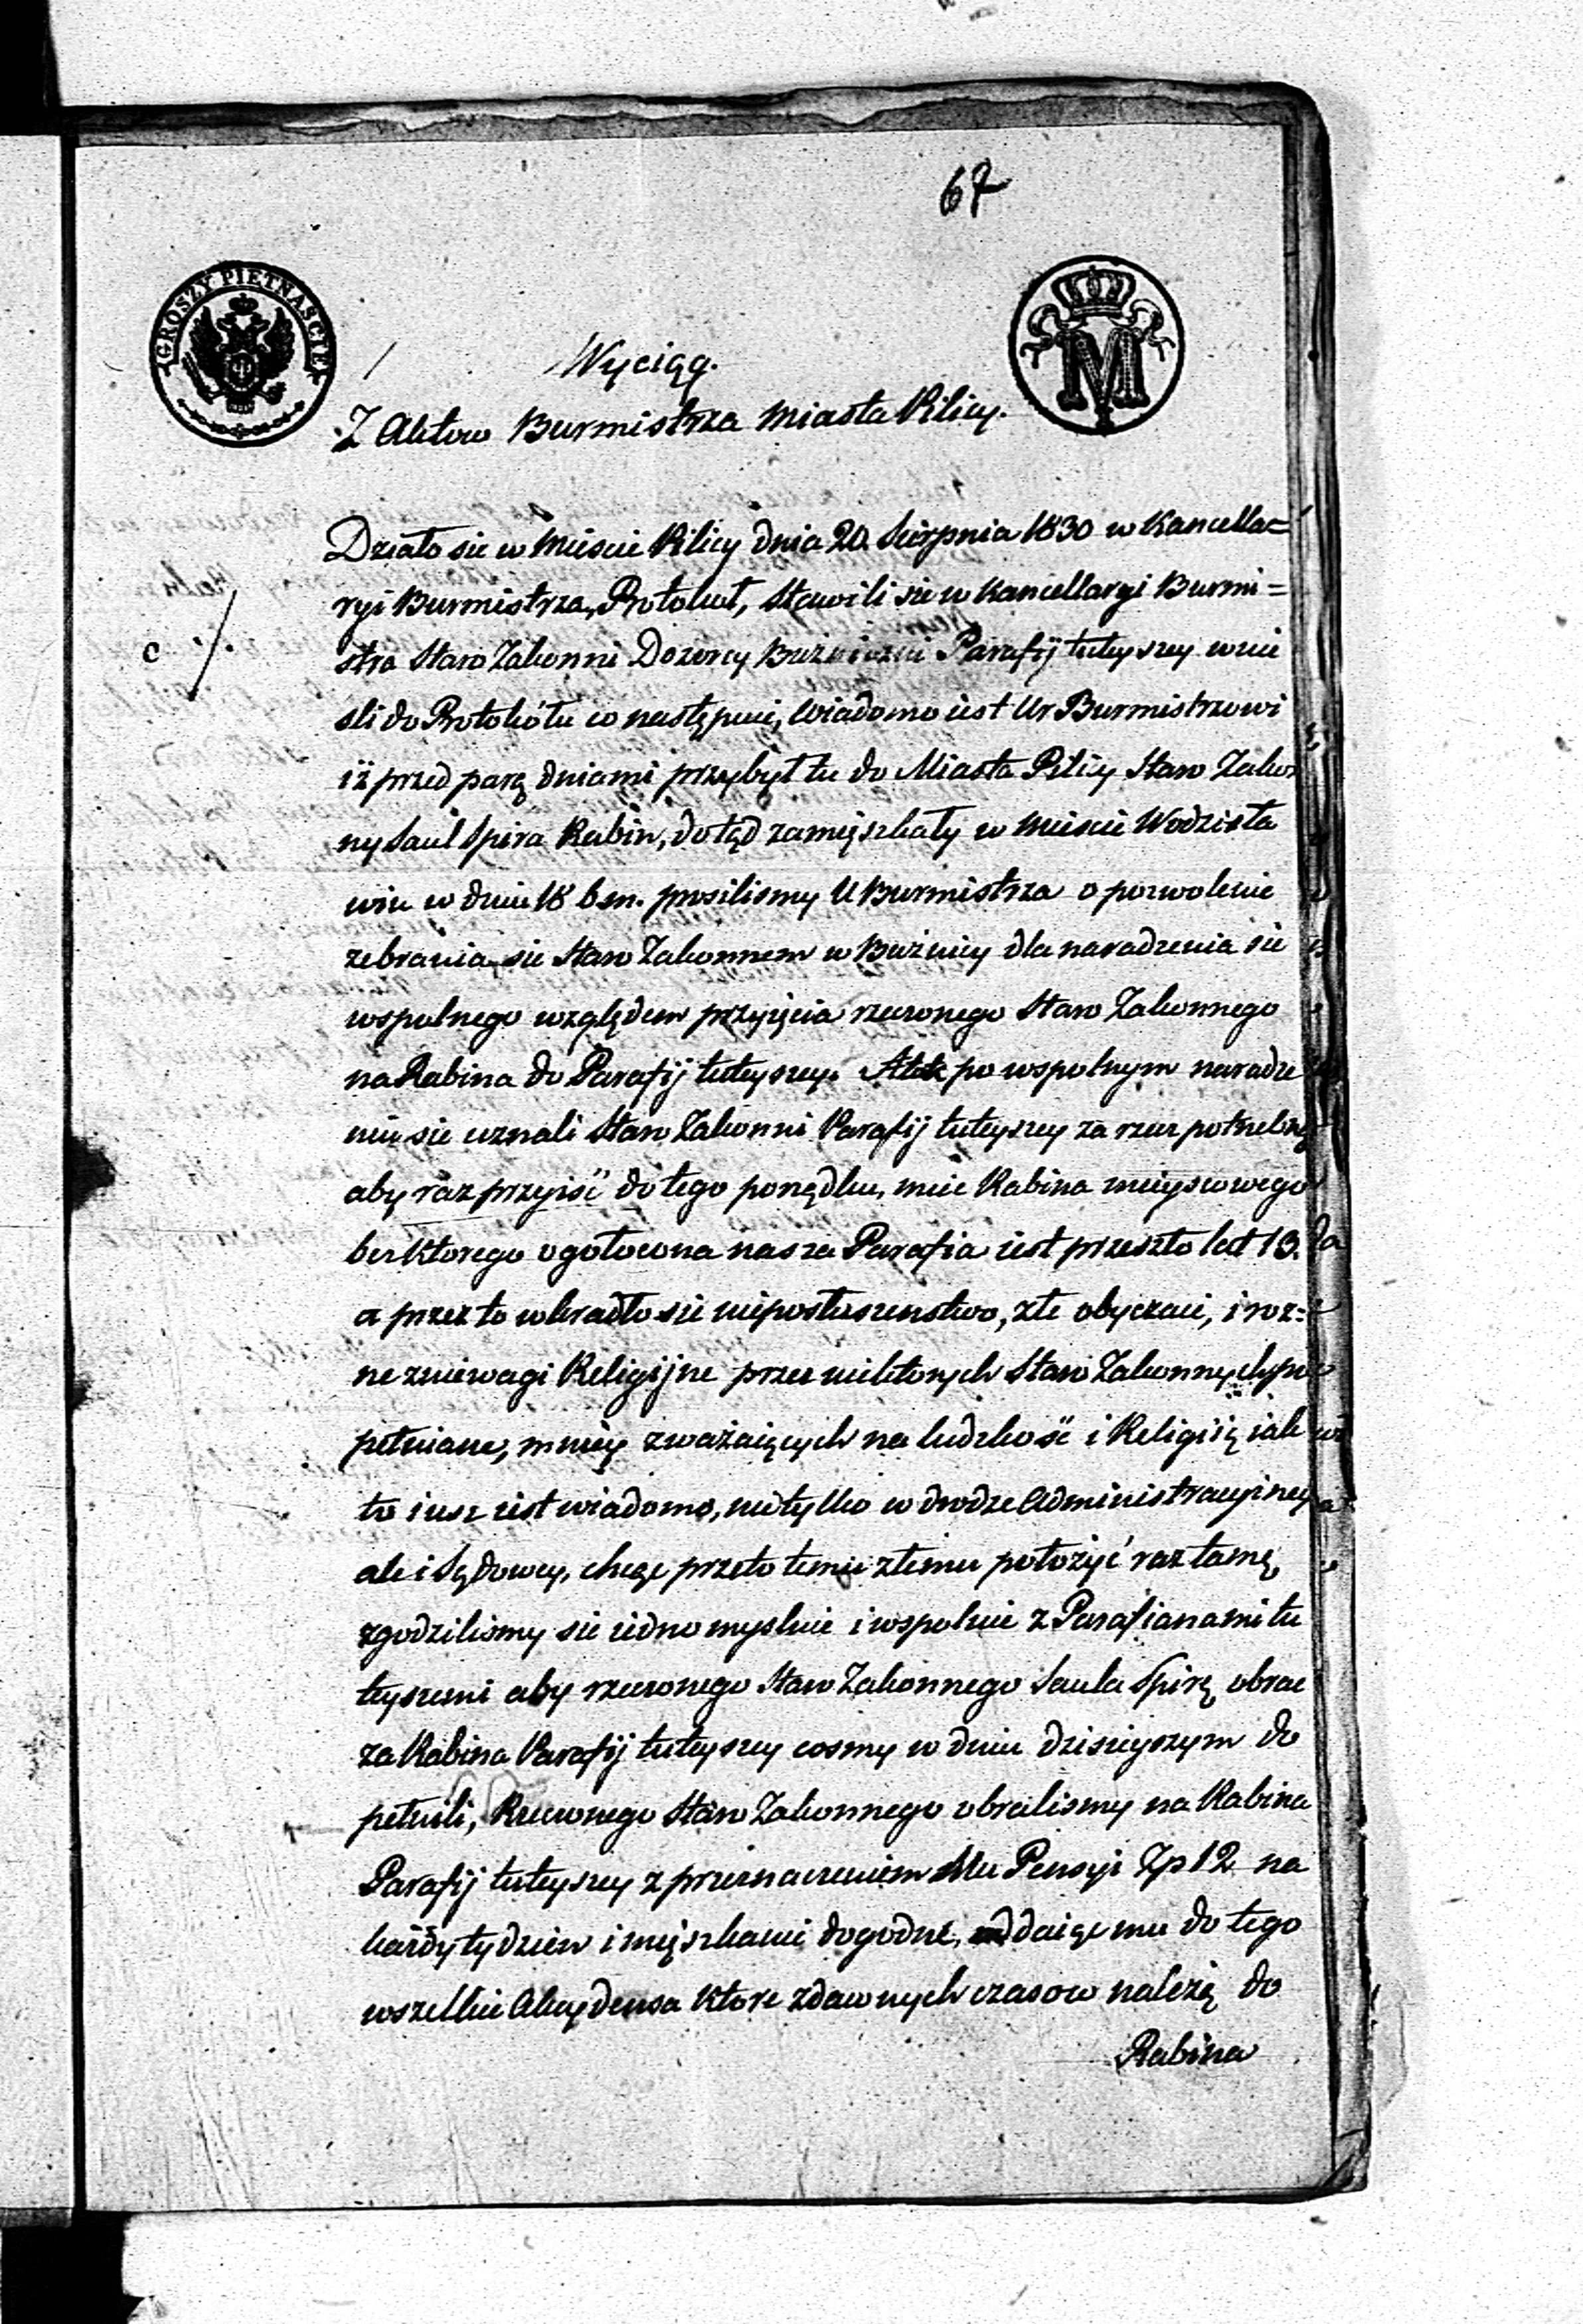 67
GROSZY PIETNAŚCIE
M
Wyciąg.
Z Aktow Burmistrza Miasta Pilicy.
Działo sie w Miescie Pilicy dnia 20. Sierpnia 1830 w Kancella=
ryi Burmistrza, Protokuł, Stawili sie w Kancellaryi Burmi=
stra Staro Zakonni Dozorcy Bużniczni Parafij tuteyszey wnie
sli do Protokółu co następuie, Wiadomo iest Ur Burmistrzowi
iż przed parą dniami przybył tu do Miasta Pilicy Staro Zakon
ny Saul Spira Rabin, dotąd zamięszkały w Miescie Wodzisła
wiu w dniu 18 b.m. prosilismy U Burmistrza o pozwolenie
zebrania sie Staro Zakonnem w Bużnicy dla naradzenia sie
wspolnego względem przyięcia rzeczonego Staro Zakonnego
na Rabina do Parafij tuteyszey. po wspolnym naradze
niu sie uznali Staro Zakonni Parafij tuteyszey za rzecz potrzebną
aby raz przyiść do tego porządku, miec Rabina mieyscowego
bez Ktorego ogołocona nasza Parafia iest przeszło lat 13.
a przez to wkradło sie nieposłuszenstwo, złe obyczaie, i roz=
ne zniewagi Religijne przez niektorych Staro Zakonnych po
pełniane, mniey zważaiących na ludzkość i Religiją iak
to iusz iest wiadomo, nietylko w drodze Administracyiney
ale i Sądowey, chcąc przeto temu złemu położyć raz tamę
zgodzilismy sie iednomyslnie i wspolnie z Parafianami tu
teyszemi aby rzeczonego Staro Zakonnego Saula Spirę obrac
za Rabina Parafij tuteyszey cosmy w dniu dzisieyszym do
pełnili, Rzeczonego Staro Zakonnego obralismy na Rabina
Parafij tuteyszey z przeznaczeniem Mu Pensyi Zp 12 na
każdy tydzien i mięszkanie dogodne, oddaiąc mu do tego
wszelkie Akcydensa Ktore zdawnych czasow należą do
Rabina